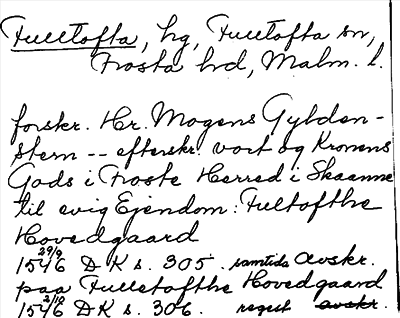 Fulltofta, hg, Fulltofta sn,
Frosta hrd, Malm. l.
forskr. Hr. Mogens Gylden-
stern -- efterskr. vort og Kronens
Gods i Froste Herred i Skaanne
til evig Ejendom: Fultofthe
Hovedgaard
1546 29/9 D K s. 305. samtida Avskr.
paa Fulletofthe Hovedgaard
1546 2/9 D K s. 306. regest avskr.